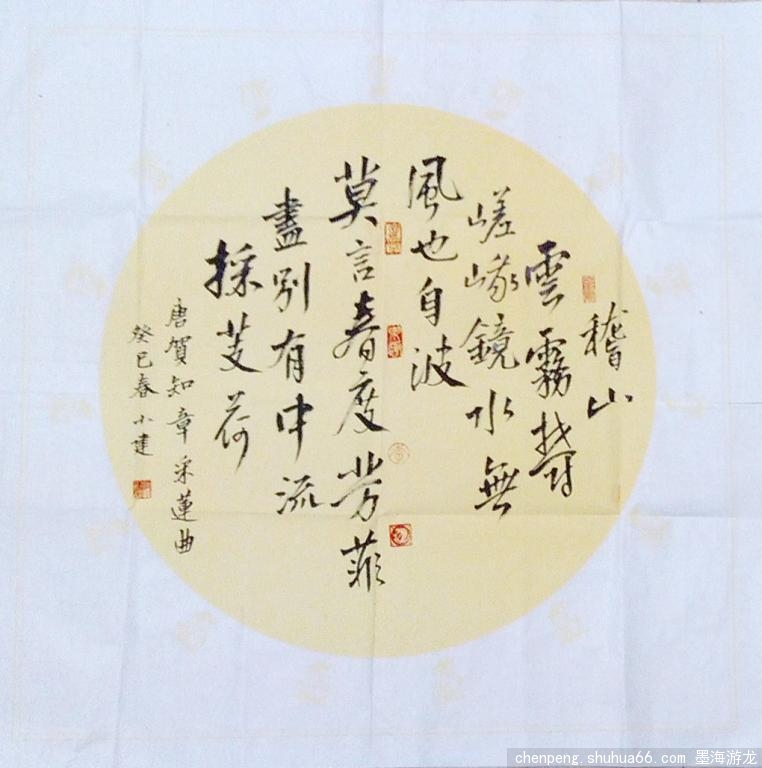 稽山
雲霧鬱
嵯峨鏡水無
風也自波
莫言春度芳菲
盡別有中流
採芰荷
唐賀知章采蓮曲
癸巳春小建
chenpeng.shuhua66.com 墨海游龙